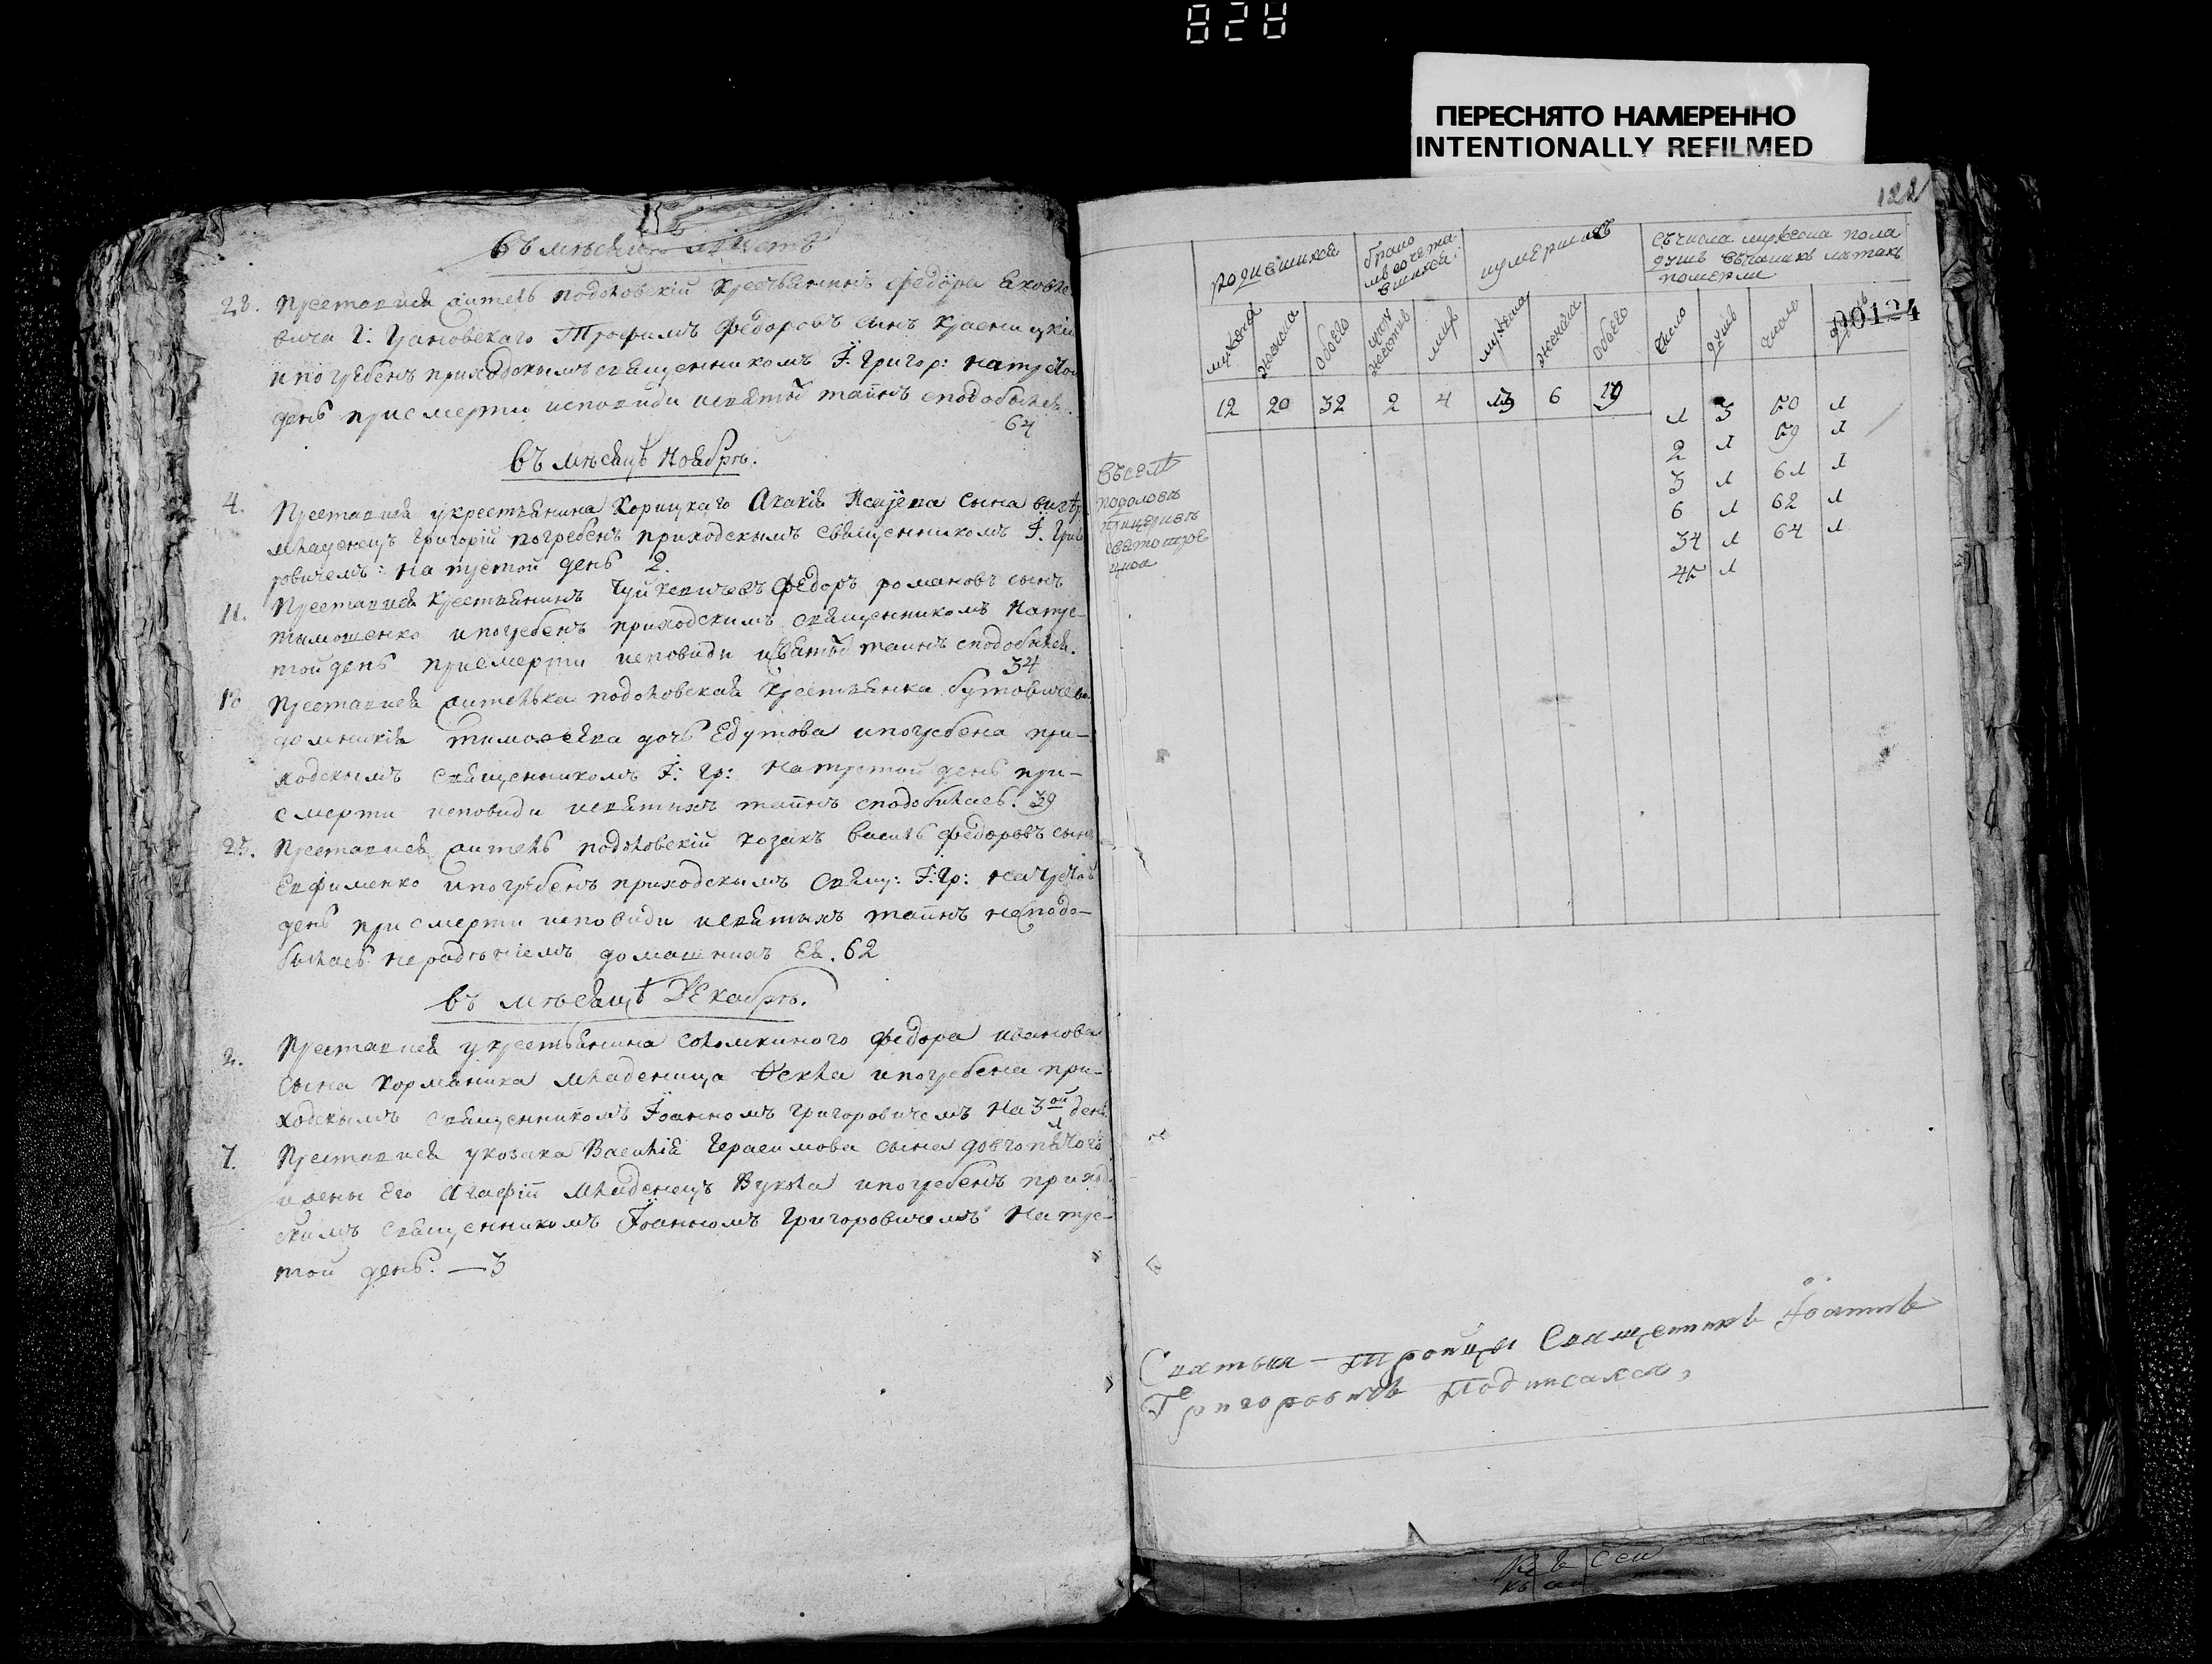 828
ПЕРЕСНЯТО НАМЕРЕННО
INTENTIONALLY REFILMED
въ мѣсяцѣ
28. Преставися житель подоловскій крестьянинъ Федора Яковле
вича Г: Трофимъ Федоровъ сынъ
и погребенъ приходскымъ священникомъ І: Григор: на третой
день при смерти исповиди и святыхъ тайнъ сподобылся.
64
въ мѣсяцѣ Ноябрѣ.
4. Преставися у крестьянина Корицкаго Акакія сына
младенецъ Григорій погребенъ приходскымъ священникомъ І. Григо
ровичемъ: на третой день 2.
11. Преставися крестьянинъ Чуйкевичевъ Федоръ романовъ сынъ
тимошенко и погребенъ приходскимъ священникомъ на тре-
той день при смерти исповиди и святыхъ таинъ сподобылся.
34
18 Преставися жителька подоловская крестьянка бутовичева
домникія дочь и погребена при-
ходскымъ священникомъ І: Гр: на третой день при-
смерти исповиди и святихъ тайнъ сподобилась. 39
25. Преставися житель подоловскій козакъ василь федоровъ сынъ
Евфименко и погребенъ приходскымъ свящ: І: Гр: на третой
день при смерти исповиди и святыхъ тайнъ не сподо-
былась нерадѣніемъ домашнихъ Ея. 62
въ мѣсяцѣ Декабрѣ.
2. Преставися у крестьянина соломкиного федора иванова
сына младеница Фекла и погребена при-
ходскымъ священникомъ Іоанномъ Григоровичемъ на 3ой день
7. Преставися у козака Василія Герасимова сына
и жены Его Агафіи младенецъ Вукла и погребенъ приход
скимъ священникомъ Іоанномъ Григоровичемъ на тре-
той день. — 3
122
00124
родившихся
брако
мъ сочета
вшихся
умершихъ
съ числа мужеска пола
душъ въ какихъ лѣтахъ
померли
мужеска женска обоего мужеска женска обоего число душъ число душъ
12 20 32 2 4 13 6 19
1 3 50 1
2 1 59 1
3 1 61 1
6 1 62 1
34 1 64 1
45 1
Въ селѣ
подоловѣ
при церквѣ
святотрое
цкоа
Святыя Тройцы Священникъ Іоаннъ
Григоровичъ подписался,